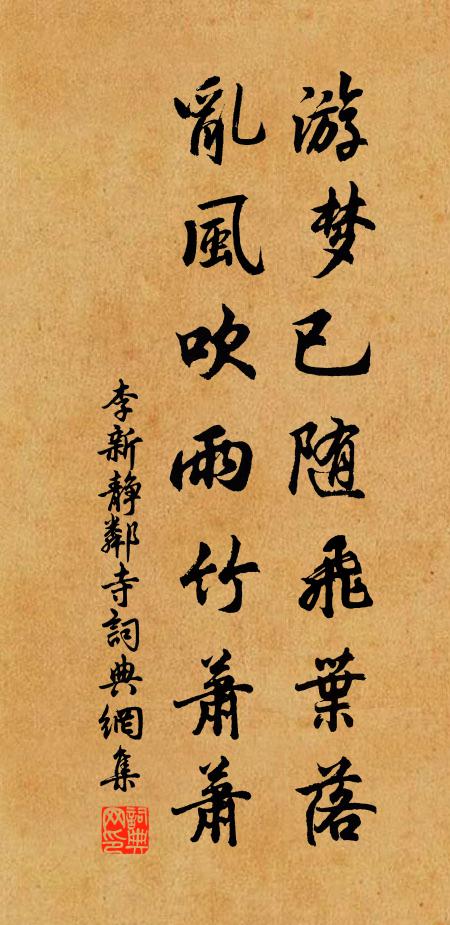 游梦已随飛葉落
亂風吹雨竹蕭蕭
李新静鄰寺詞典網集
詞典网印